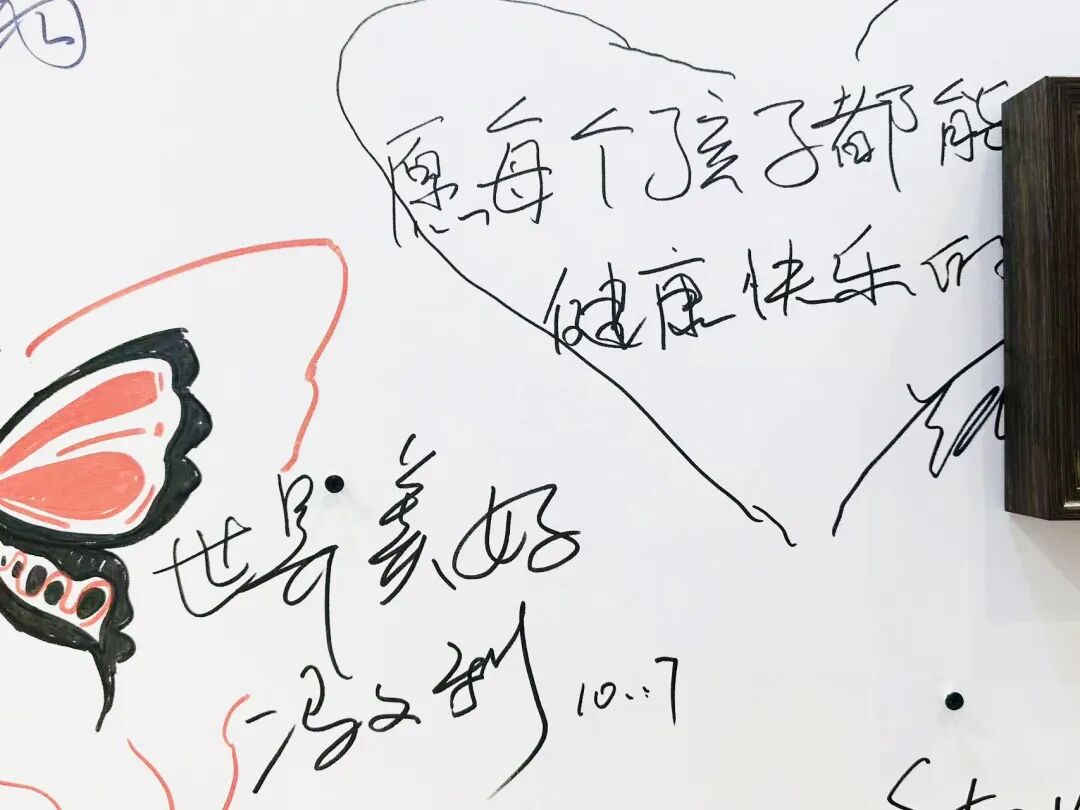 愿每个孩子都能
健康快乐的
世界美好
冯文利
10.7
St